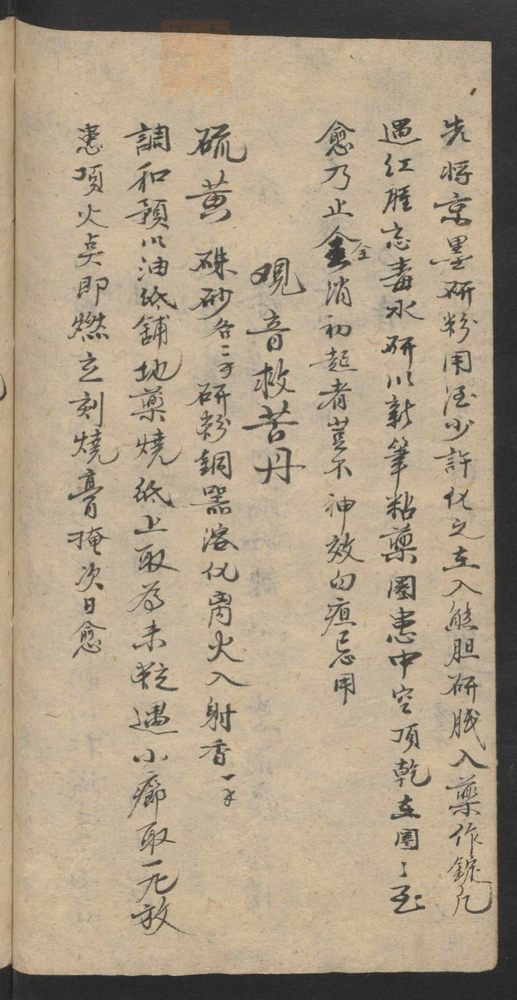 先将京墨研粉用酒少許化之在入熊胆研膩入藥作錠凡
遇紅腫志毒水研以新筆粘藥圈患中空頂乾在圈〻至
愈乃止全消初起者豈不神效勾疽忌用
观音救苦丹
硫黄 硃砂各二錢研粉銅器溶化离火入射香一錢
調和預以油纸鋪地藥燒纸上取為末粒遇小癤取一九放
患頂火点即燃立刻燒膏掩次日愈